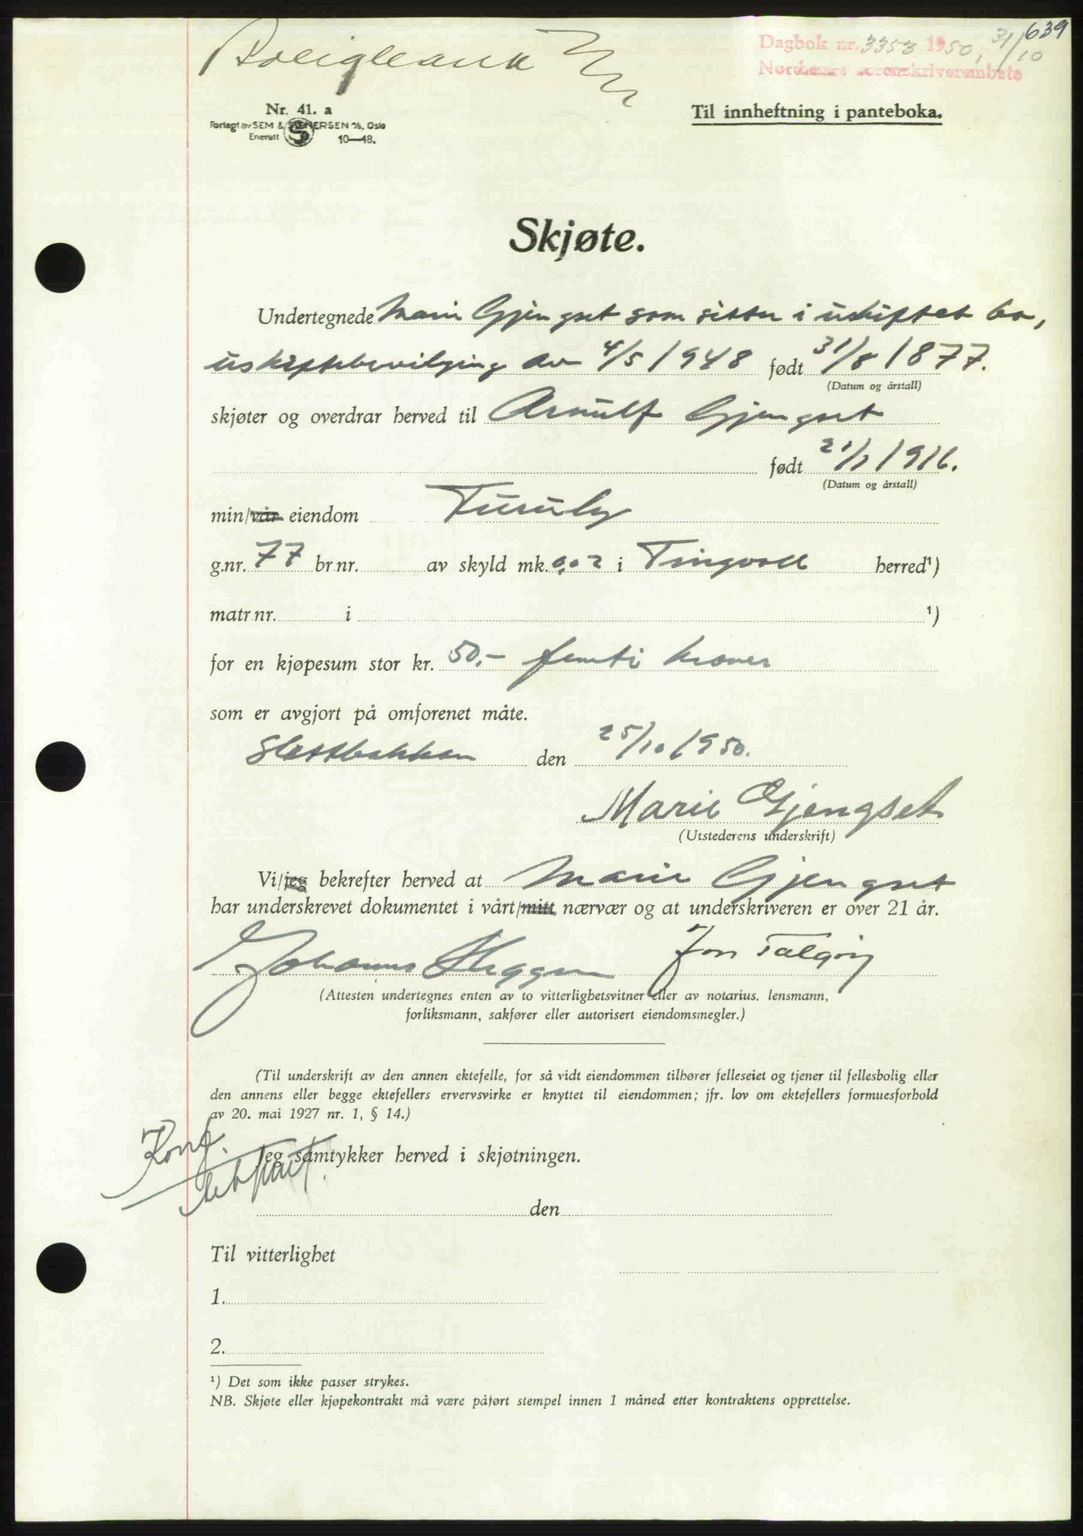 639
Dagbok nr. 3353 1950, 31/10
Nordmøre sorenskriverembete
Nr. 41. a
Forlagt av SEM & STENERSEN A/S, Oslo
Enerett 10—48.
Til innheftning i panteboka.
Skjøte.
Undertegnede Marie Gjengset som sitter i uskiftet bo,
uskiftebevilging av 4/5 1948 født 31/8 1877.
(Datum og årstall)
skjøter og overdrar herved til Arnulf Gjengset
født 21/1 1916.
(Datum og årstall)
min/vår eiendom Furuly
g.nr. 77 br nr. av skyld mk. 0,02 i Tingvoll herred¹)
matr nr. i ¹)
for en kjøpesum stor kr. 50.- femti kroner
som er avgjort på omforenet måte.
den 25/10 1950.
Marie Gjengset
(Utstederens underskrift)
Vi/jeg bekrefter herved at Marie Gjengset
har underskrevet dokumentet i vårt/mitt nærvær og at underskriveren er over 21 år.
Johannes Heggem Jon Talgøy
(Attesten undertegnes enten av to vitterlighetsvitner eller av notarius, lensmann,
forliksmann, sakfører eller autorisert eiendomsmegler.)
(Til underskrift av den annen ektefelle, for så vidt eiendommen tilhører felleseiet og tjener til fellesbolig eller
den annens eller begge ektefellers ervervsvirke er knyttet til eiendommen; jfr. lov om ektefellers formuesforhold
av 20. mai 1927 nr. 1, § 14.)
Konf.
Jeg samtykker herved i skjøtningen.
den
Til vitterlighet
1.
2.
¹) Det som ikke passer strykes.
NB. Skjøte eller kjøpekontrakt må være påført stempel innen 1 måned etter kontraktens opprettelse.